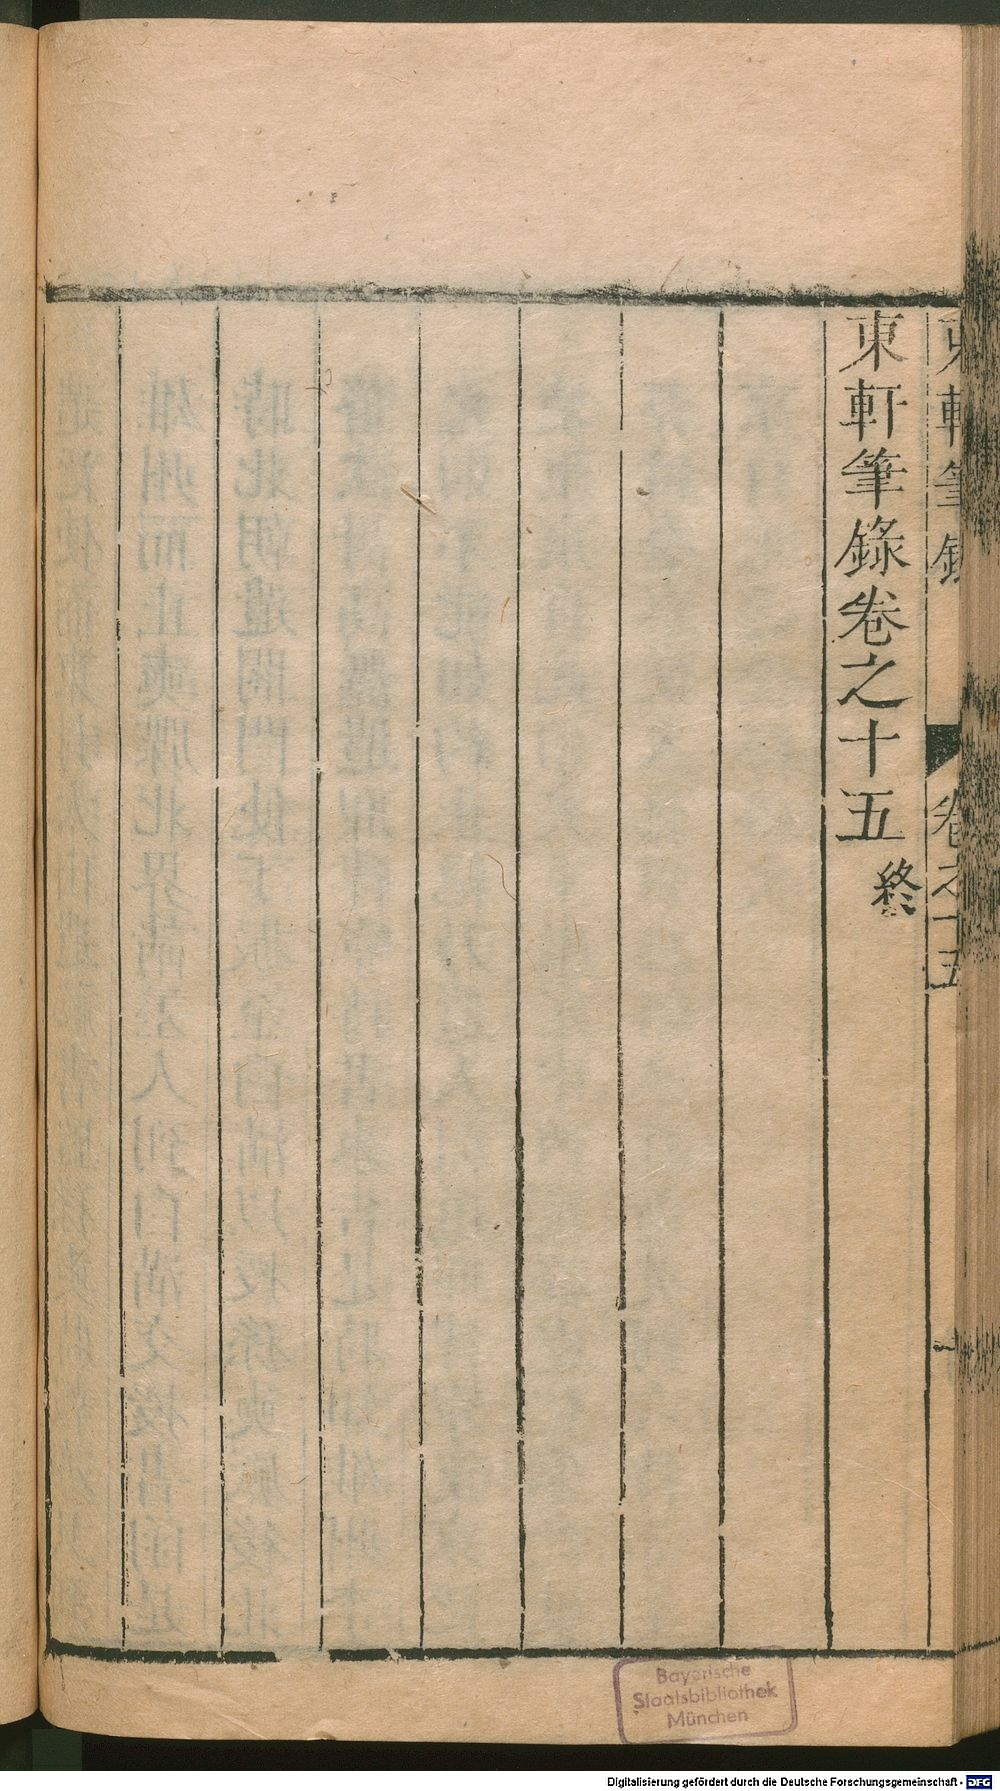 東軒筆錄
卷之十五
東軒筆錄卷之十五終
Bayerische
Staatsbibliothek
München
Digitalisierung gefördert durch die Deutsche Forschungsgemeinschaft - DFG